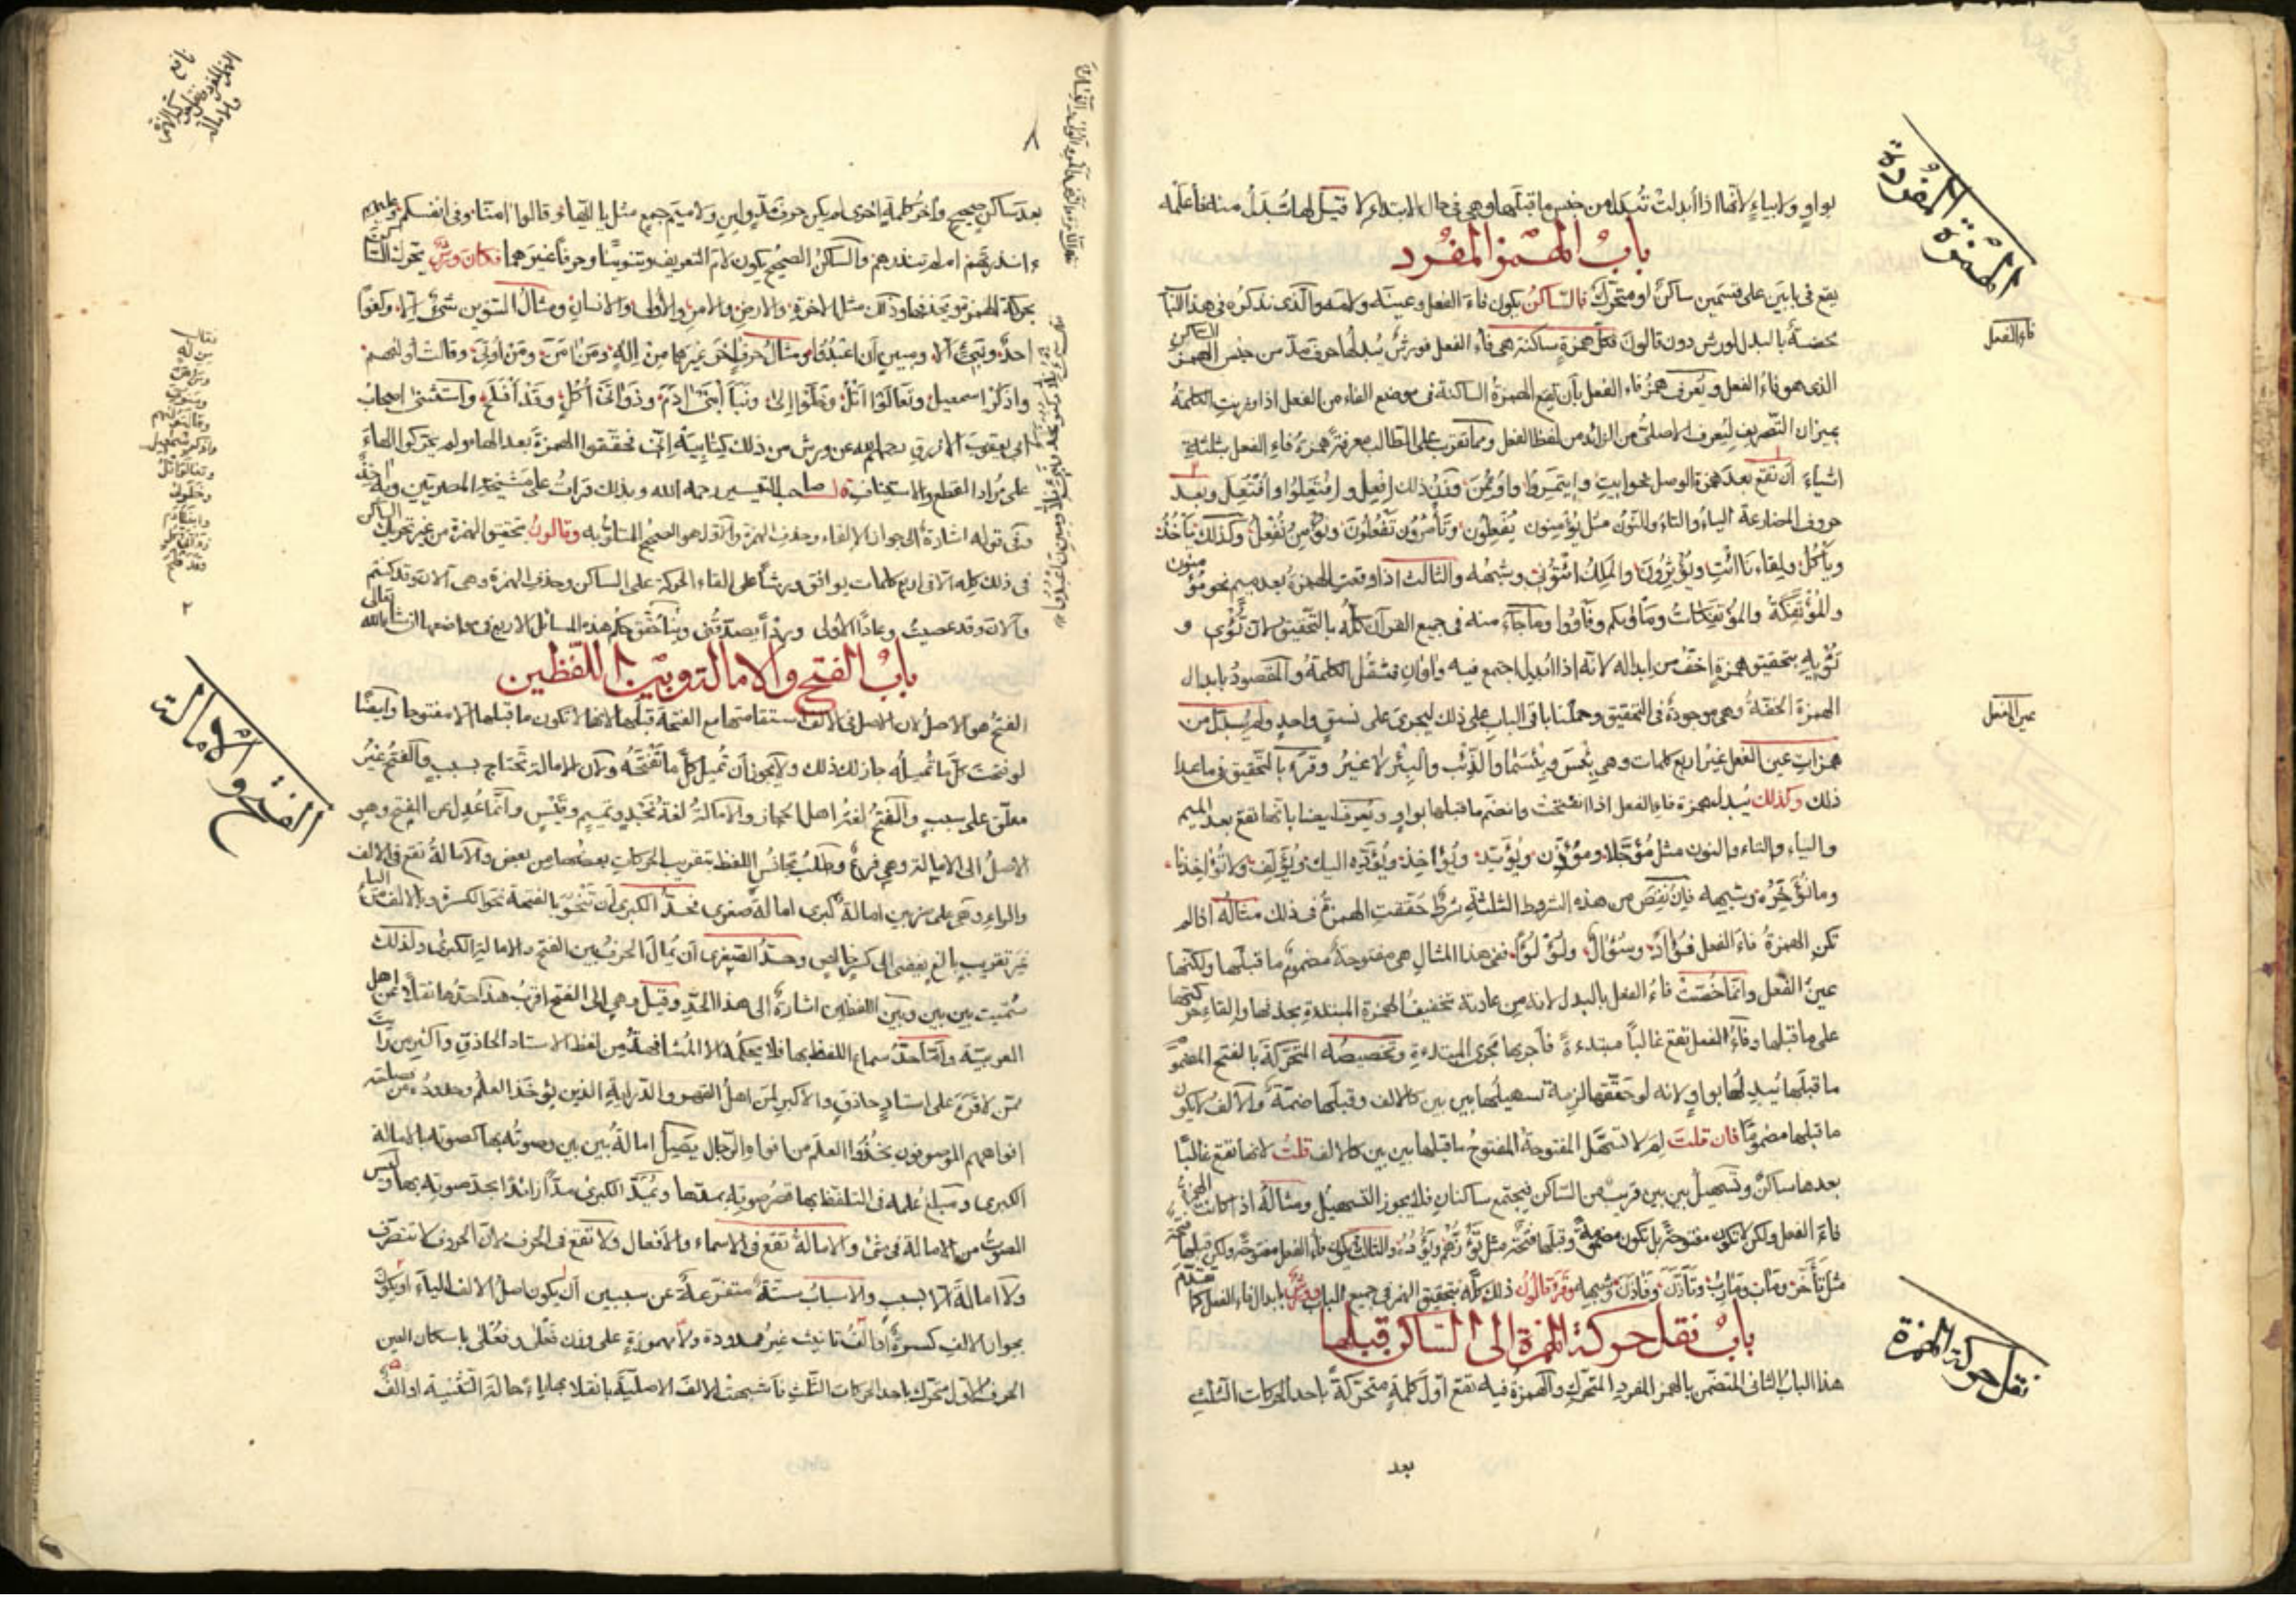 بواو ولا بياء لانها اذا أبدلت تبدل من جنس ما قبلها وهي في حال الابتداء لا قبل لها تبدل منه فاعلمه
باب الهمز المفرد
يقع في بابين على قسمين ساكن او متحرك فالساكن يكون فاء الفعل وعينه ولامه والذى نذكره في هذا الباب
يخصه بالبدل لورش دون قالون فكل همزة ساكنة هى فاء الفعل فورش يبدلها حرف مد من جنس
الذى هو فاء الفعل ويعرف همز فاء الفعل بأن تقع الهمزة الساكنة في موضع الفاء من الفعل اذا وزنت الكلمة
بميزان التصريف ليعرف الاصلى من الزائد من لفظ الفعل ومما تقرب على الطالب معرفة همزة فاء الفعل بثلثة
اشياء أن تقع بعد همزة الوصل نحو ايت وايتمروا واوتمن وزن ذلك افعل وافتعلوا وافتعل وبعد
حروف المضارعة الياء والتاء والنون مثل يؤمنون يفعلون وتأمرون تفعلون ونؤمن نفعل وكذلك يأخذ
ويأكل ولقاءنا ائت ويؤثرون والملك ائتونى وشبهه والثالث اذا وقعت الهمزة بعد ميم نحو مؤمنون
والمؤتفكة والمؤتفكات ومأويكم وفأووا وما جاء منه في جميع القرآن كله بالتحقيق لان تؤوى و
تؤيه بتحقيق همزة اخف من ابداله لانه اذا ابدل اجتمع فيه واوان فتثقل الكلمة والمقصود بابدال
الهمزة الخفة وهى موجودة في التحقيق وحملنا باقى الباب على ذلك ليجرى على نسق واحد ولم يبدل من
همزات عين الفعل غير اربع كلمات وهى بئس وبئسما والذئب والبئر لا غير وقرء بالتحقيق فيما عدا
ذلك وكذلك يبدل همزة فاء الفعل اذا انفتحت وانضم ما قبلها بواو ويعرف ايضا بانها تقع بعد الميم
والياء والتاء والنون مثل مؤجلا ومؤذن ويؤيد ويؤاخذ ويؤده اليك ويؤلف ولا تؤاخذنا
وما نؤخره وشبهه فان نقص من هذه الشروط الثلثة شرط حققت الهمزة في ذلك مثاله اذا لم
تكن الهمزة فاء الفعل فؤاد وسؤال ولؤلؤا ففي هذا المثال هى مفتوحة مضموم ما قبلها ولكنها
عين الفعل وانما خصت فاء الفعل بالبدل لانه من عادته تخفيف الهمزة المبتدئة بحذفها والقاء حركتها
على ما قبلها وفاء الفعل تقع غالبا مبتدءة فأجريها مجرى المبتدءة وتخصيصه المتحركة بالفتح المضموم
ما قبلها يبدلها بواو ولانه لو حققها لزمه تسهيلها بين بين كالالف وقبلها ضمة والالف لا يكون
ما قبلها مضموما فان قلت لم لا تسهل المفتوحة المفتوح ما قبلها بين بين كالالف قلت لانها تقع غالبا
بعدها ساكن وتسهيل بين بين قريب من الساكن فيجتمع ساكنان فلا يجوز التسهيل ومثاله اذا كانت الهمزة
فاء الفعل ولكن لا تكون مفتوحة بل تكون مضمومة وقبلها فتحة مثل تؤزهم ويؤده والثالث يكون فاء الفعل مفتوحة ولكن قبلها فتحة
مثل تأخر ومآب ومآرب وتأذن وفأذن وشبهها وقرء قالون ذلك كله بتحقيق الهمز في جميع الباب وورش بابدال فاء الفعل كما تقدم
باب نقل حركة الهمزة الى الساكن قبلها
هذا الباب الثانى المتضمن بالهمز المفرد المتحرك والهمزة فيه تقع اول كلمة متحركة باحد الحركات الثلث
بعد
الهمزة المفردة
فاء الفعل
عين الفعل
نقل حركة الهمزة
٨
بعد ساكن صحيح وآخر كلمة اخرى لم يكن حرف مد ولين ولا ميم جمع مثل يا ايها وقالوا امنا وفى انفسكم
ءانذرتهم ام لم تنذرهم والساكن الصحيح يكون لام التعريف وتنوينا وحرفا غيرهما فكان ورش يحرك الساكن
بحركة الهمزة ويحذفها وذلك مثل الاخرة والارض والامر والاولى والانسان ومثال التنوين شئ الا وكفوا
احد ونبئ الا ومبين أن اعبدوا ومثال حرف اخر غيرهما من اله ومن امن ومن اوتى وقالت اوليهم
واذكر اسمعيل وتعالوا اتل وخلوا الى ونبأ ابنى ادم وذواتى أكل وقد أفلح واستثنى اصحاب
ابى يعقوب الازرق رحمهم الله عن ورش من ذلك كتابيه انى فحققوا الهمزة بعد الهاء ولم يحركوا الهاء
على مراد القطع والاستيناف قال صاحب التيسير رحمه الله وبذلك قرأت على مشيخة المصريين
وفى قوله اشارة الى جواز الالقاء وحذف الهمزة والاول هو الصحيح المتلو به وقالون بتحقيق الهمزة من غير تحريك الساكن
فى ذلك كله الا فى اربع كلمات يوافق ورشا على القاء الحركة على الساكن وحذف الهمزة وهى آلان وقد كنتم
وآلان وقد عصيت وعادا الاولى وردأ يصدقنى وسنحقق حكم هذه المسائل الاربع فى مواضعها ان شاء الله تعالى
باب الفتح والامالة وبين اللفظين
الفتح هو الاصل لان الاصل فى الالف استقامتها مع الفتحة قبلها لانها لا تكون ما قبلها الا مفتوحا وايضا
لو فتحت كل ما تميله جاز لك ذلك ولا يجوز أن تميل كل ما تفتحه ولان الامالة تحتاج بسبب والفتح غير
معلق على سبب والفتح لغة اهل الحجاز والامالة لغة نجد وتميم وقيس وانما عدل عن الفتح وهو
الاصل الى الامالة وهى فرع وطلب تجانس اللفظ بتقريب الحركات بعضها من بعض والامالة تقع فى الالف
والراء وهى على ضربين امالة كبرى امالة صغرى فحد الكبرى أن تنحو بالفتحة نحو الكسرة وبالالف نحو الياء
غير تقريب بالغ يفضى الى كسر خالص وحد الصغرى أن يمال الحرف بين الفتح والامالة الكبرى ولذلك
سميت بين بين وبين اللفظين اشارة الى هذا الحد وقيل وهى الى الفتح اقرب هذا حدها نقلا عن اهل
العربية وأما حد سماع اللفظ بها فلا يحكمه الا المشافهة من لفظ الاستاد الحاذق واكثر من رأيت
ممن لا قرء على استاد حاذق والاكبر لمن اهل القصور والدراية الذين يؤخذ العلم وحدوده من
افواههم الموصوفون بخذوا العلم من افواه الرجال يصيل امالة بين بين وصوته بها كصوته بالامالة
الكبرى ومبلغ علمه فى التلفظ بها قصر صوته بمدها ويمد الكبرى مدا زائدا بحد صوته بها وليس
الصوت من الامالة فى شئ والامالة تقع فى الاسماء والافعال ولا تقع فى الحرف لان الحروف لا تتصرف
ولا امالة الا بسبب والاسباب ستة متفرعة عن سببين أن يكون اصل الالف الياء او يكون
بجوار الالف كسرة او الف تانيث غير ممدودة ولا مهموزة على وزن فعلى وفعلى باسكان العين
الحرف الاول متحرك باحد الحركات الثلث فأشبهت الالف الاصلية بانقلابها ياء حالة التثنية او الف
الفتح والامالة